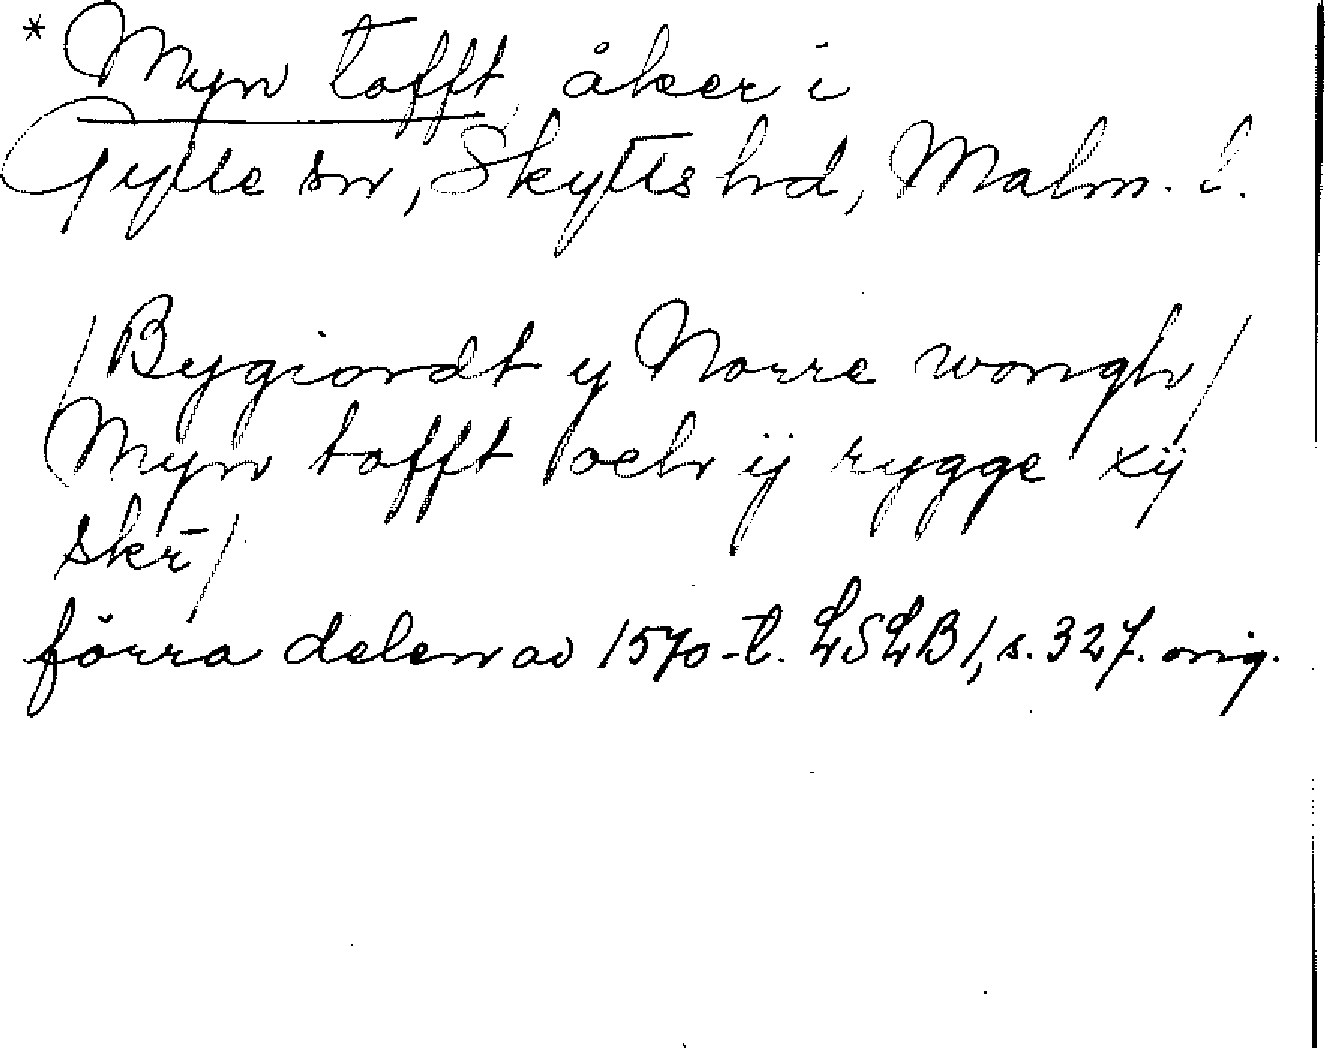 * Myn tofft, åker i
Gylle sn, Skytts hd, Malm. l.
/Bygiordt y Norre wongh/
Myn tofft och ij rygge xij
skr̄/
förra delen av 1570-t. LSLB 1, s. 327. orig.